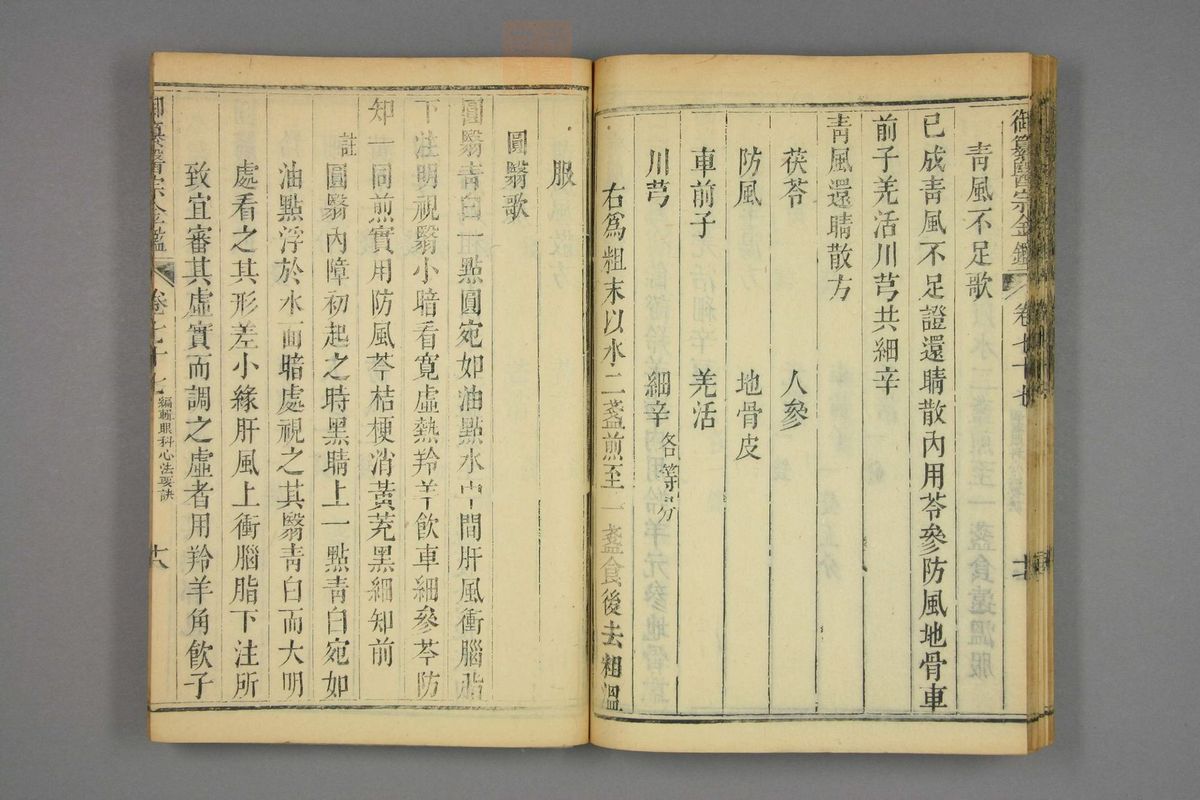 御纂醫宗金鑑 卷七十七
青風不足歌
已成青風不足證還睛散內用苓參防風地骨車
前子羌活川芎共細辛
青風還睛散方
茯苓 人參
防風 地骨皮
車前子 羌活
川芎 細辛各等分
右爲粗末以水二盞煎至一盞食後去粗溫
服
圓翳歌
圓翳青白一點圓宛如油點水中間肝風衝腦脂
下注明視翳小暗看寬虛熱羚羊飲車細參芩防
知一同煎實用防風芩桔梗消黃芫黑細知前
註圓翳內障初起之時黑睛上一點青白宛如
油點浮於水面暗處視之其翳青白而大明
處看之其形差小緣肝風上衝腦脂下注所
致宜審其虛實而調之虛者用羚羊角飲子
御纂醫宗金鑑 卷七十七 編輯眼科心法要訣 十八